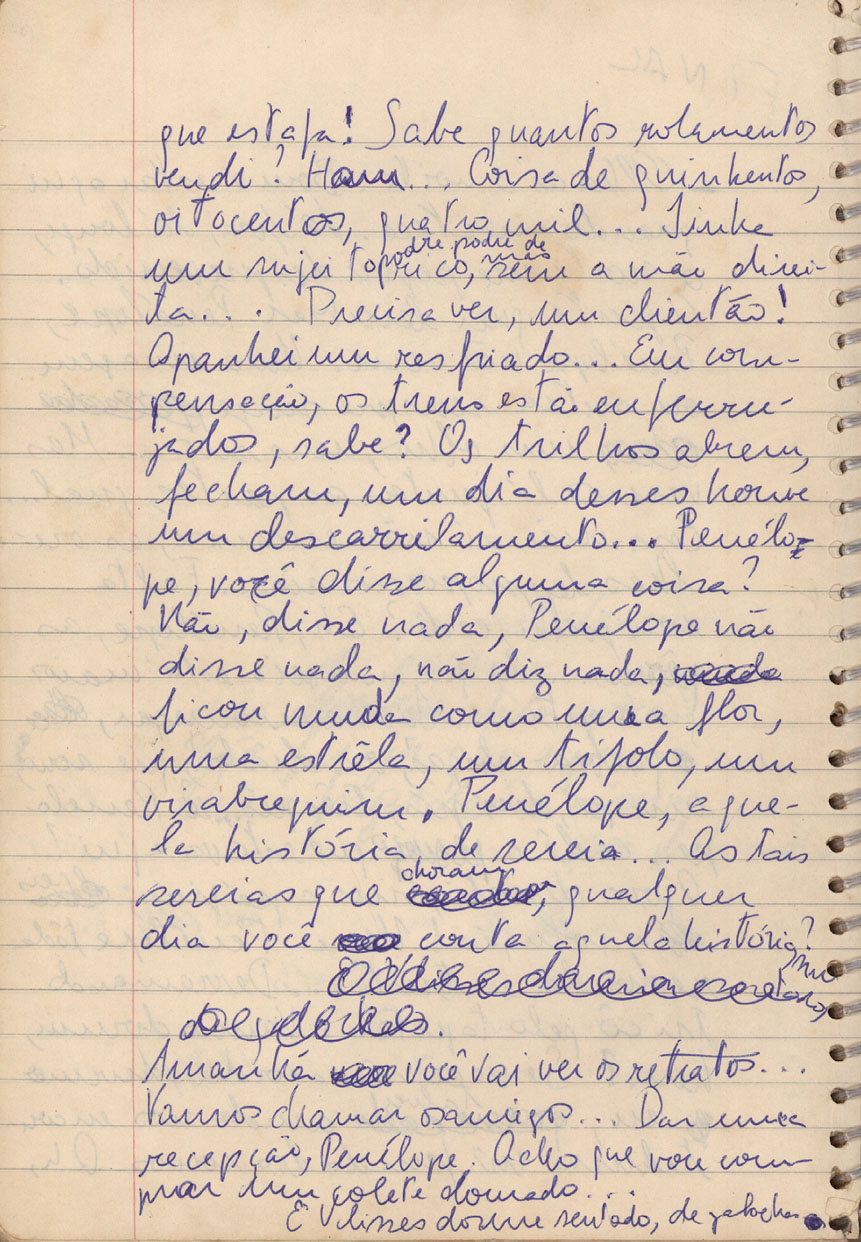 que estafa! Sabe quantos rolamentos
vendi? Ham... Coisa de quinhentos,
oitocentos, quatro mil... Tinha
podre podre de
mas
um sujeito rico, sem a mão direi-
ta... Precisa ver, um clientão!
Apanhei um resfriado... Em com-
pensação, os trens estão enferru-
jados, sabe? Os trilhos abrem,
fecham, um dia desses houve
um descarrilamento... Penélo-
pe, você disse alguma coisa?
Não, disse nada, Penélope não
disse nada, não diz nada, muda
ficou muda como uma flor,
uma estrêla, um tijolo, um
virabrequim. Penélope, aque-
la história, de sereia... As tais
choram
sereias que, qualquer
dia você conta aquela história?
Ulisses dorme sentado,
de galochas.
Amanhã você vai ver os retratos...
Vamos chamar os amigos... Dar uma
recepção, Penélope. Acho que vou com-
prar um colete dourado...
E Ulisses dorme sentado, de galochas.